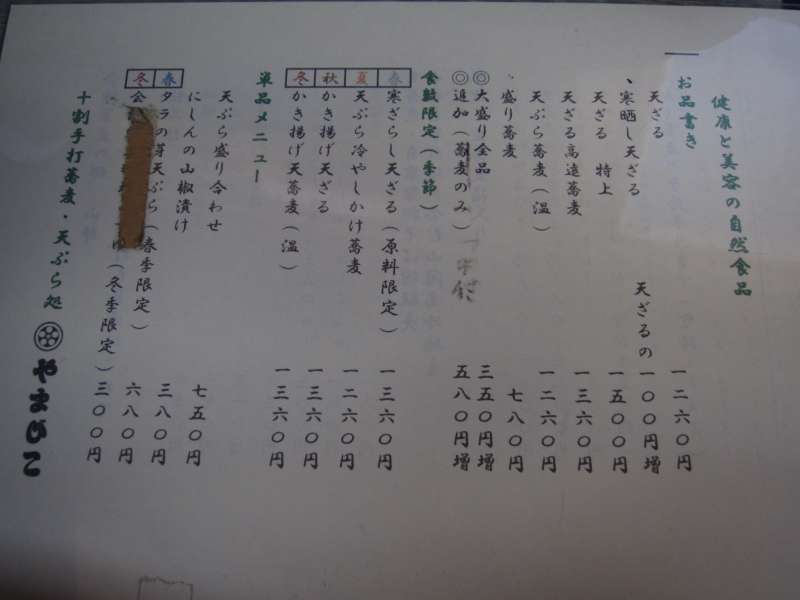 健康と美容の自然食品
お品書き
天ざる 一二六〇円
寒晒し天ざる 天ざるの 一〇〇円増
天ざる 特上 一五〇〇円
天ざる高遠蕎麦 一三六〇円
天ぷら蕎麦(温) 一二六〇円
盛り蕎麦 七八〇円
◎大盛り全品 三五〇円増
◎追加(蕎麦のみ) 五八〇円増
食数限定(季節)
春 寒ざらし天ざる(原料限定) 一三六〇円
夏 天ぷら冷やしかけ蕎麦 一二六〇円
秋 かき揚げ天ざる 一三六〇円
冬 かき揚げ天蕎麦(温) 一三六〇円
単品メニュー
天ぷら盛り合わせ 七五〇円
にしんの山椒漬け 三八〇円
春 タラの芽天ぷら(春季限定) 六八〇円
冬 会 ゆ(冬季限定) 三〇〇円
十割手打蕎麦・天ぷら処 やまびこ